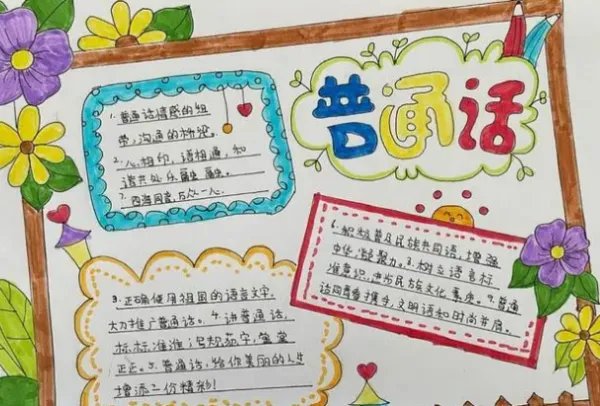 普通话
1.普通话情感的纽
带,沟通的桥梁。
2.心相印,语相通,和
谐共处乐融融。
7.四海同音,万众一心。
6.积极普及民族共同语,增强
中华凝聚力。8.树立语言标
准意识,
民族文化素质。9.普通
话同青春携手,文明语和时尚并肩。
3.正确使用祖国的语言文字,
大力推广普通话。4.讲普通话,
标标准准;写规范字,堂堂
正正。5.普通话,给你美丽的人生
增添一份精彩!